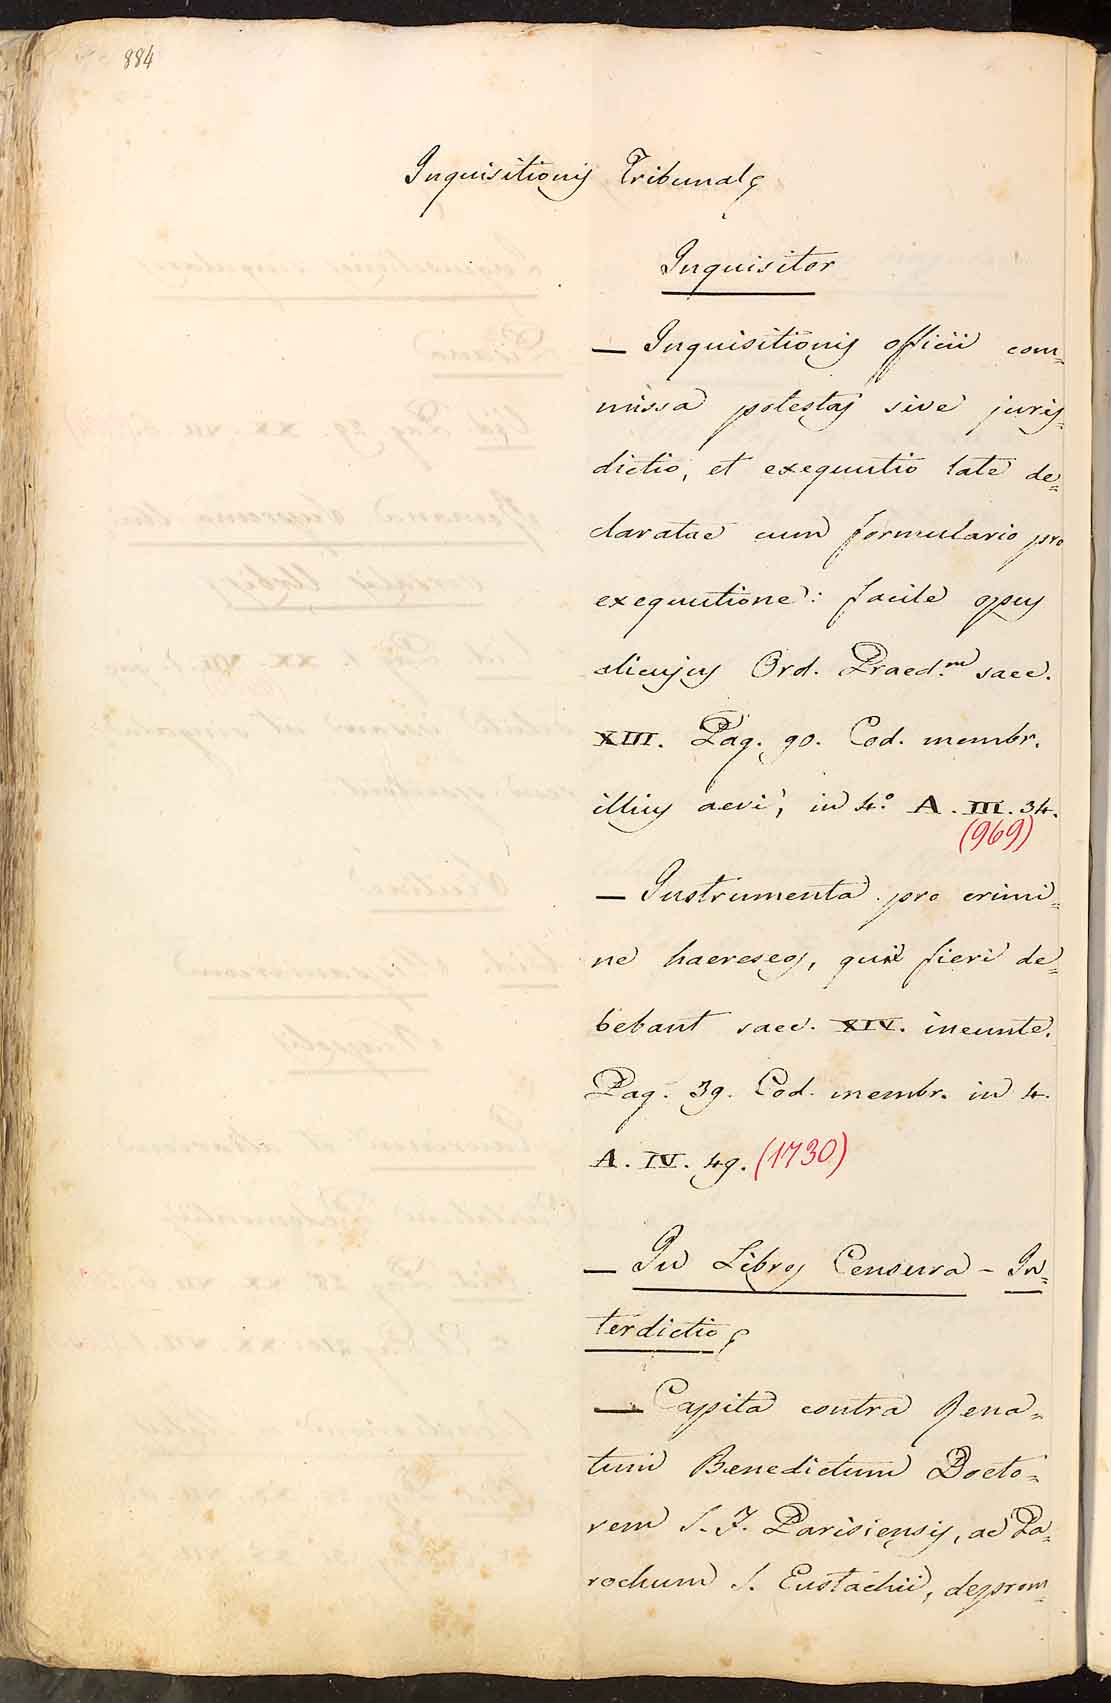 884
Inquisitionis Tribunal
Inquisitor
— Inquisitionis officii com=
missa potestas sive juris=
dictio, et exequutio late de=
claratae cum formulario pro
exequutione: facile opus
alicujus Ord. Praed.m saec.
XIII. Pag. 90. Cod. membr.
illius aevi, in 4.º A. III. 34.
(969)
— Instrumenta pro crimi=
ne haereseos, quae fieri de=
bebant saec. XIV. ineunte.
Pag. 39. Cod. membr. in 4.
A. IV. 49. (1730)
— In Libros Censura - In=
terdictio
— Capita contra Rena=
tum Benedictum Docto=
rem S. F. Parisiensis, ac Pa=
rochum S. Eustachii, deprom=